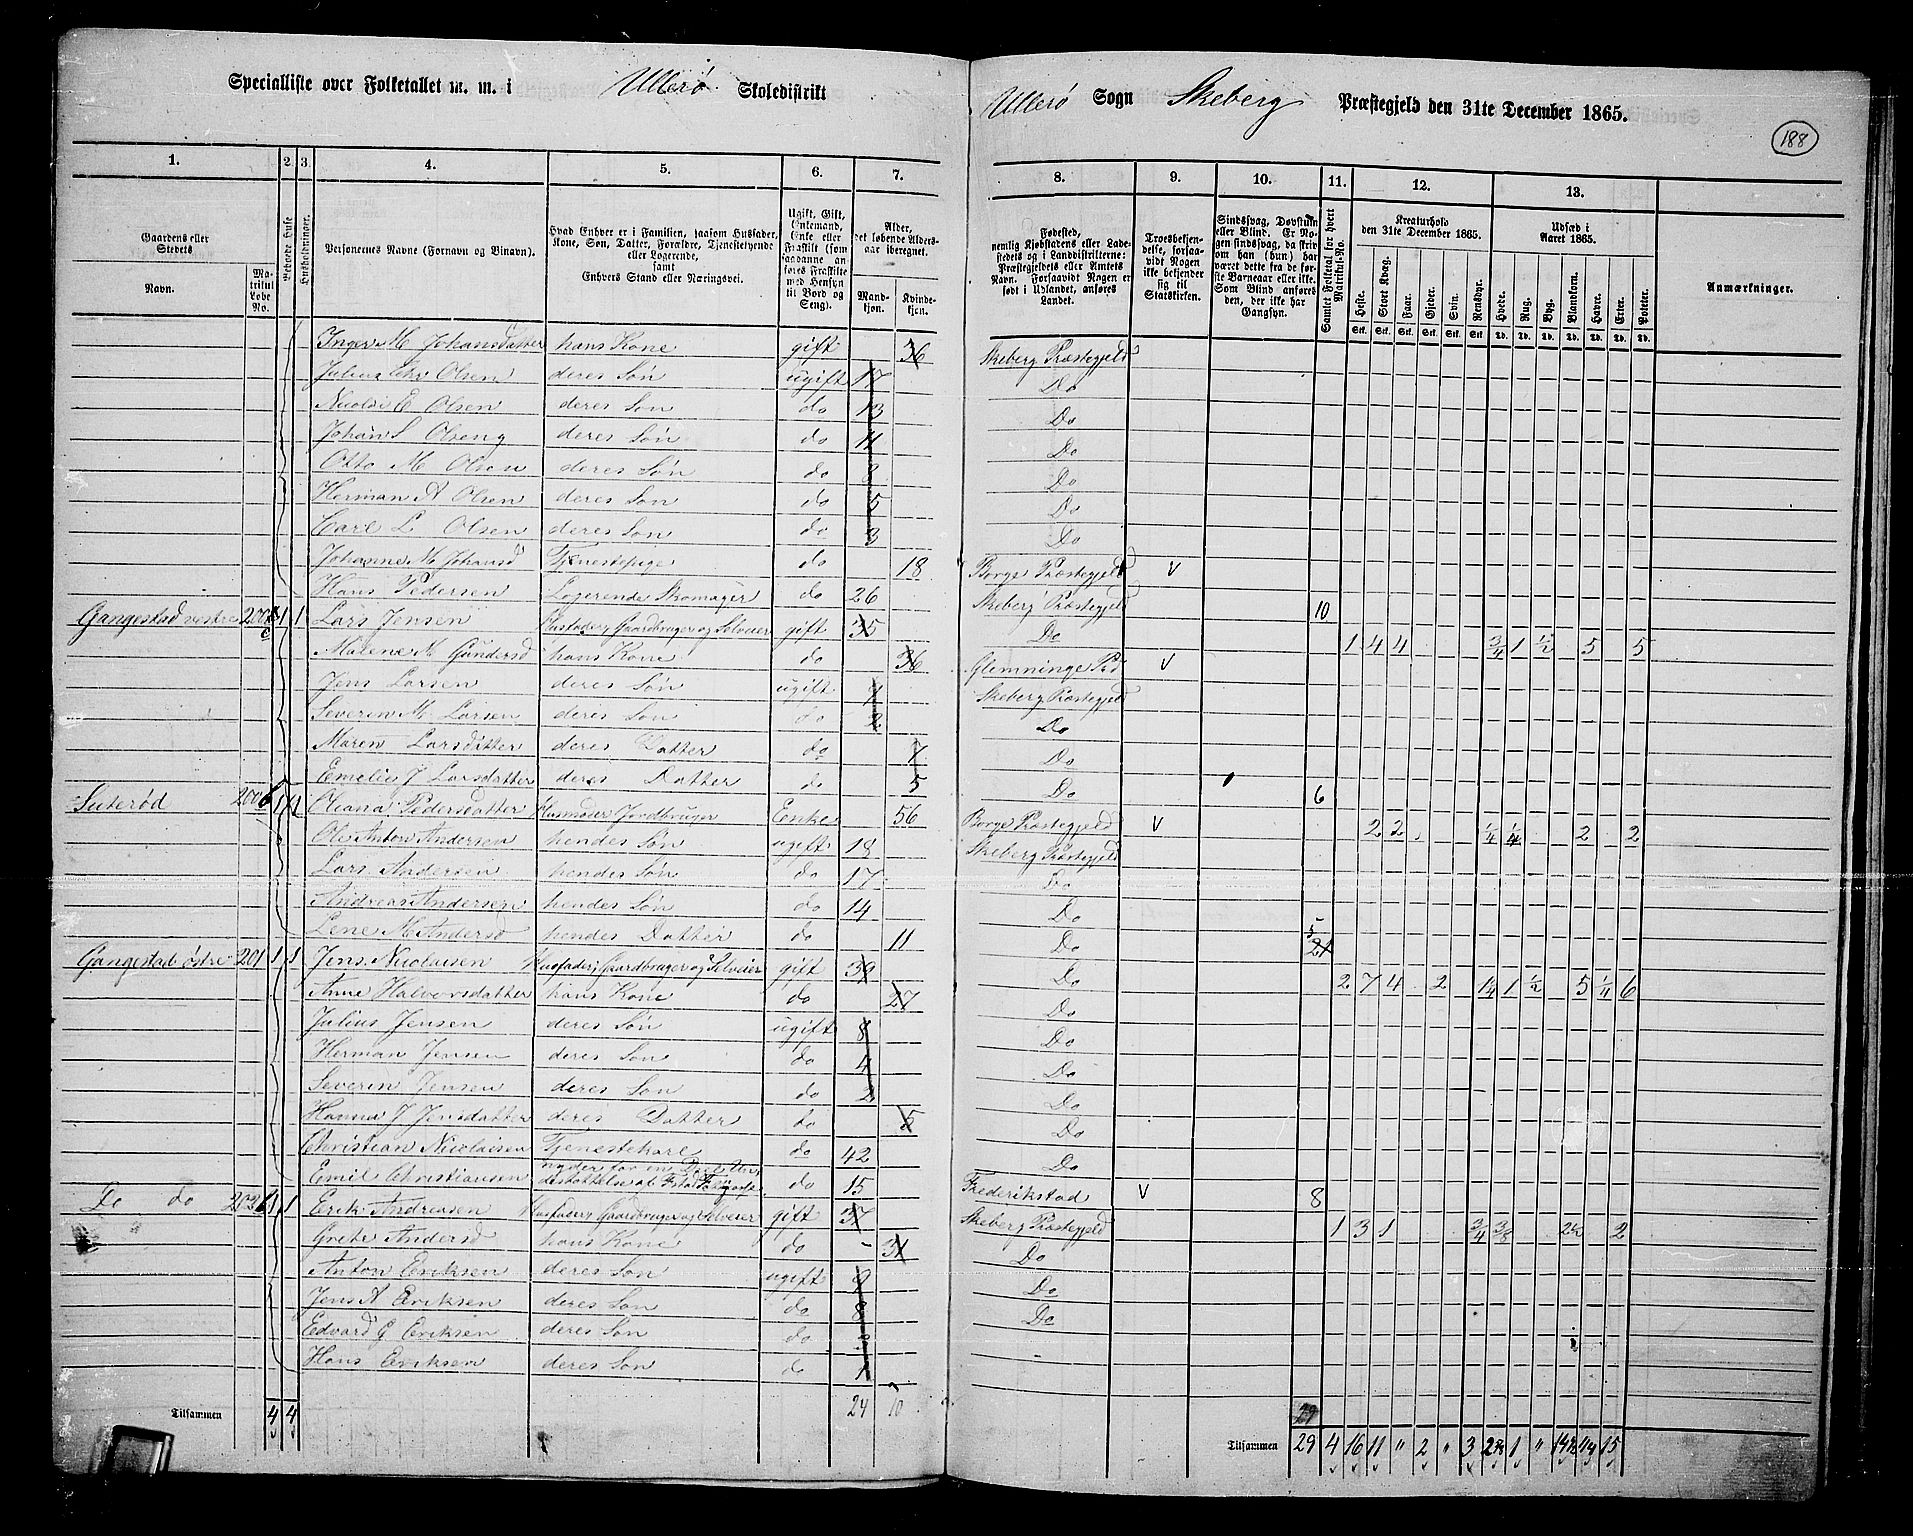 Specialliste over Folketallet m. m. i Ullerø Skoledistrikt
Ullerø Sogn Skeberg Præstegjeld den 31te December 1865.
188
1. 2. 3. 4. 5. 6. 7. 8. 9. 10. 11. 12. 13.
Gaardens eller Stedets
Navn.
Matrikul Løbe No.
Beboede Huse
Husholdninger.
Personernes Navne (Fornavn og Binavn).
Hvad Enhver er i Familien, saasom Husfader, Kone, Søn, Datter, Forældre, Tjenestetyende eller Logerende, samt Enhvers Stand eller Næringsvei.
Ugift, Gift, Enkemand, Enke eller Fraskilt (som saadanne anføres Fraskilte med Hensyn til Bord og Seng).
Alder, det løbende Aldersaar iberegnet.
Mandkjøn.
Kvindekjøn.
Fødested, nemlig Kjøbstadens eller Ladestedets og i Landdistrikterne: Præstegjeldets eller Amtets Navn. Forsaavidt Nogen er født i Udlandet, anføres Landet.
Troesbekjendelse, forsaavidt Nogen ikke bekjender sig til Statskirken.
Sindssvag, Døvstum eller Blind. Er Nogen sindssvag, da skrives om han (hun) har været dette fra de første Barneaar eller ikke. Som Blind anføres den, der ikke har Gangsyn.
Samlet Folketal for hvert Matrikul-No.
Kreaturhold den 31te December 1865.
Heste. Stort Kvæg. Faar. Gjeder. Svin. Rensdyr.
Udsæd i Aaret 1865.
Hvede. Rug. Byg. Blandkorn. Havre. Erter. Poteter.
Anmærkninger.
Inger M Johansdatter hans Kone gift 36 Skeberg Præstegjeld
Julius Olsen deres Søn ugift 17 Do
Nicolai E Olsen deres Søn do 13 Do
Johan S Olsen deres Søn do 11 Do
Otto M Olsen deres Søn do 8 Do
Herman A Olsen deres Søn do 5 Do
Carl L Olsen deres Søn do 3 Do
Johanne M Johansd Tjenestepige do 18 Borge Præstegjeld V
Hans Pedersen Logerende Skomager do 26 Skeberg Præstegjeld 10
Gangestad vestre 200 1 1 Lars Jensen Husfader, Gaardbruger og Selveier gift 35 Do 1 4 4 3/4 1 1/2 5 5
Malene M Gundersd hans Kone do 36 Glemminge Pd V
Jens Larsen deres Søn ugift 7 Skeberg Præstegjeld
Severin M Larsen deres Søn do 2 Do
Maren Larsdatter deres Datter do 7 Do
Emelie J Larsdatter deres Datter do 5 Do 6
Suterød 200 1 1 Oliana Pedersdatter Husmoder Jordbruger Enke 56 Borge Præstegjeld V 2 2 1/4 1/4 2 2
Ole Anton Andersen hendes Søn ugift 18 Skeberg Præstegjeld
Lars Andersen hendes Søn do 17 Do
Andreas Andersen hendes Søn do 14 Do
Lene M Andersd hendes Datter do 11 Do 5
Gangestad østre 201 1 1 Jens Nicolaisen Husfader, Gaardbruger og Selveier gift 39 Do 2 7 4 2 1/4 1 1/2 5 1/4 6
Anne Halvorsdatter hans Kone do 27 Do
Julius Jensen deres Søn ugift 8 Do
Herman Jensen deres Søn do 4 Do
Severin Jensen deres Søn do 2 Do
Hanna J Jensdatter deres Datter do 5 Do
Christian Nicolaisen Tjenestekarl do 42 Do
Emil Christiansen nyder for en Deel Understøttelse af do 15 Frederikstad V 8
Do do 203 1 1 Erik Andreasen Husfader, Gaardbruger og Selveier gift 37 Skeberg Præstegjeld 1 3 1 3/4 3/8 2 1/2 2
Grete Andersd hans Kone do 31 Do
Anton Eriksen deres Søn ugift Do
Jens A Eriksen deres Søn do 8 Do
Edvard G Eriksen deres Søn do
Hans Eriksen deres Søn do 1
Tilsammen 4 4 24 10 29
Tilsammen 29 4 16 11 " 2 " 3 1 " 15